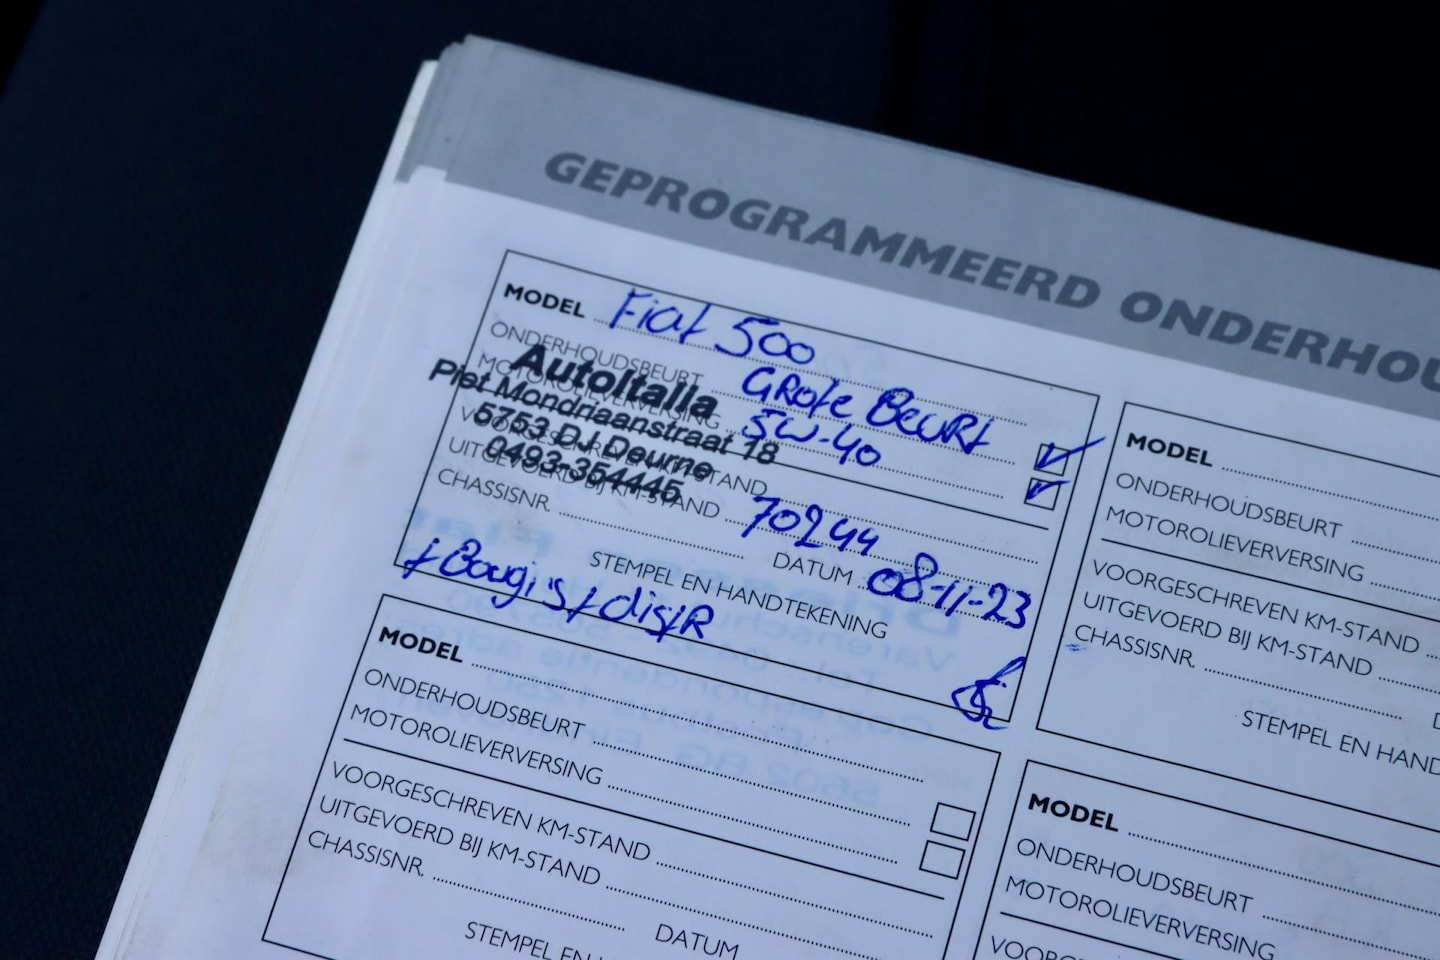 GEPROGRAMMEERD ONDERHOU
MODEL Fiat 500
ONDERHOUDSBEURT GROte BeuRt
MOTOROLIEVERVERSING 5W-40
AutoItalia
Piet Mondriaanstraat 18
5753 DJ Deurne
0493-354445
VOORGESCHREVEN KM-STAND
UITGEVOERD BIJ KM-STAND 70244
CHASSISNR. DATUM 08-11-23
STEMPEL EN HANDTEKENING
+ Bougis + distR
MODEL
ONDERHOUDSBEURT
MOTOROLIEVERVERSING
VOORGESCHREVEN KM-STAND
UITGEVOERD BIJ KM-STAND
CHASSISNR.
STEMPEL EN DATUM
MODEL
ONDERHOUDSBEURT
MOTOROLIEVERVERSING
VOORGESCHREVEN KM-STAND
UITGEVOERD BIJ KM-STAND
CHASSISNR.
STEMPEL EN HAND
MODEL
ONDERHOUDSBEURT
MOTOROLIEVERVERSING